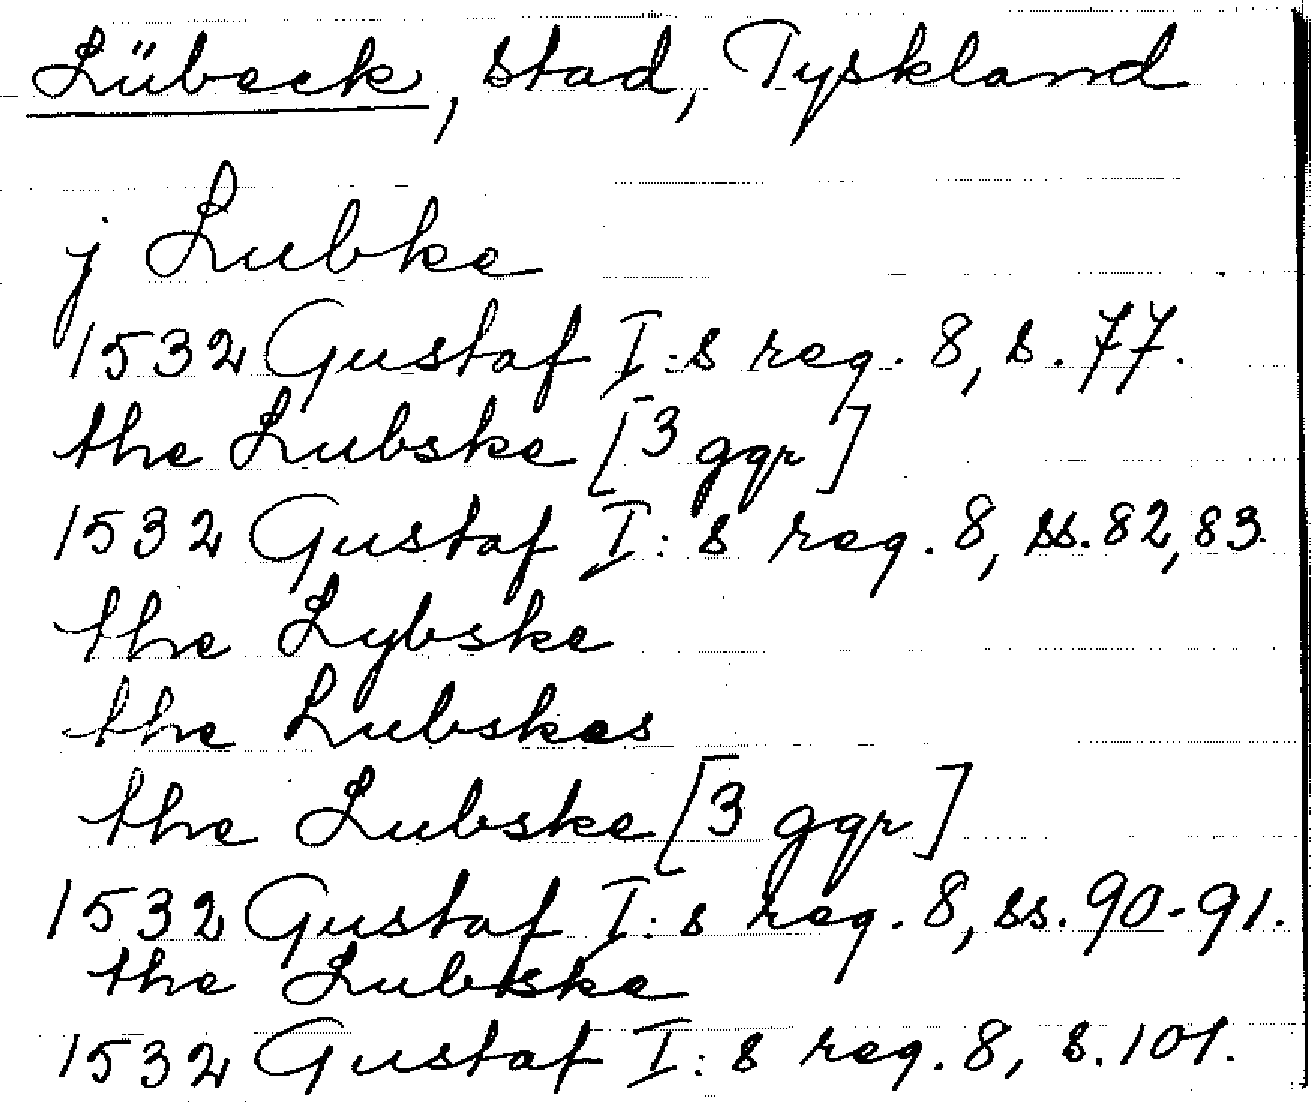 Lübeck, stad, Tyskland
j Lubke
1532 Gustaf I:s reg. 8, s. 77.
the Lubske [3 ggr]
1532 Gustaf I:s reg. 8, ss. 82, 83.
the Lybske
the Lubskes
the Lubske [3 ggr]
1532 Gustaf I:s reg. 8, ss. 90-91.
the Lubske
1532 Gustaf I:s reg. 8, s. 101.